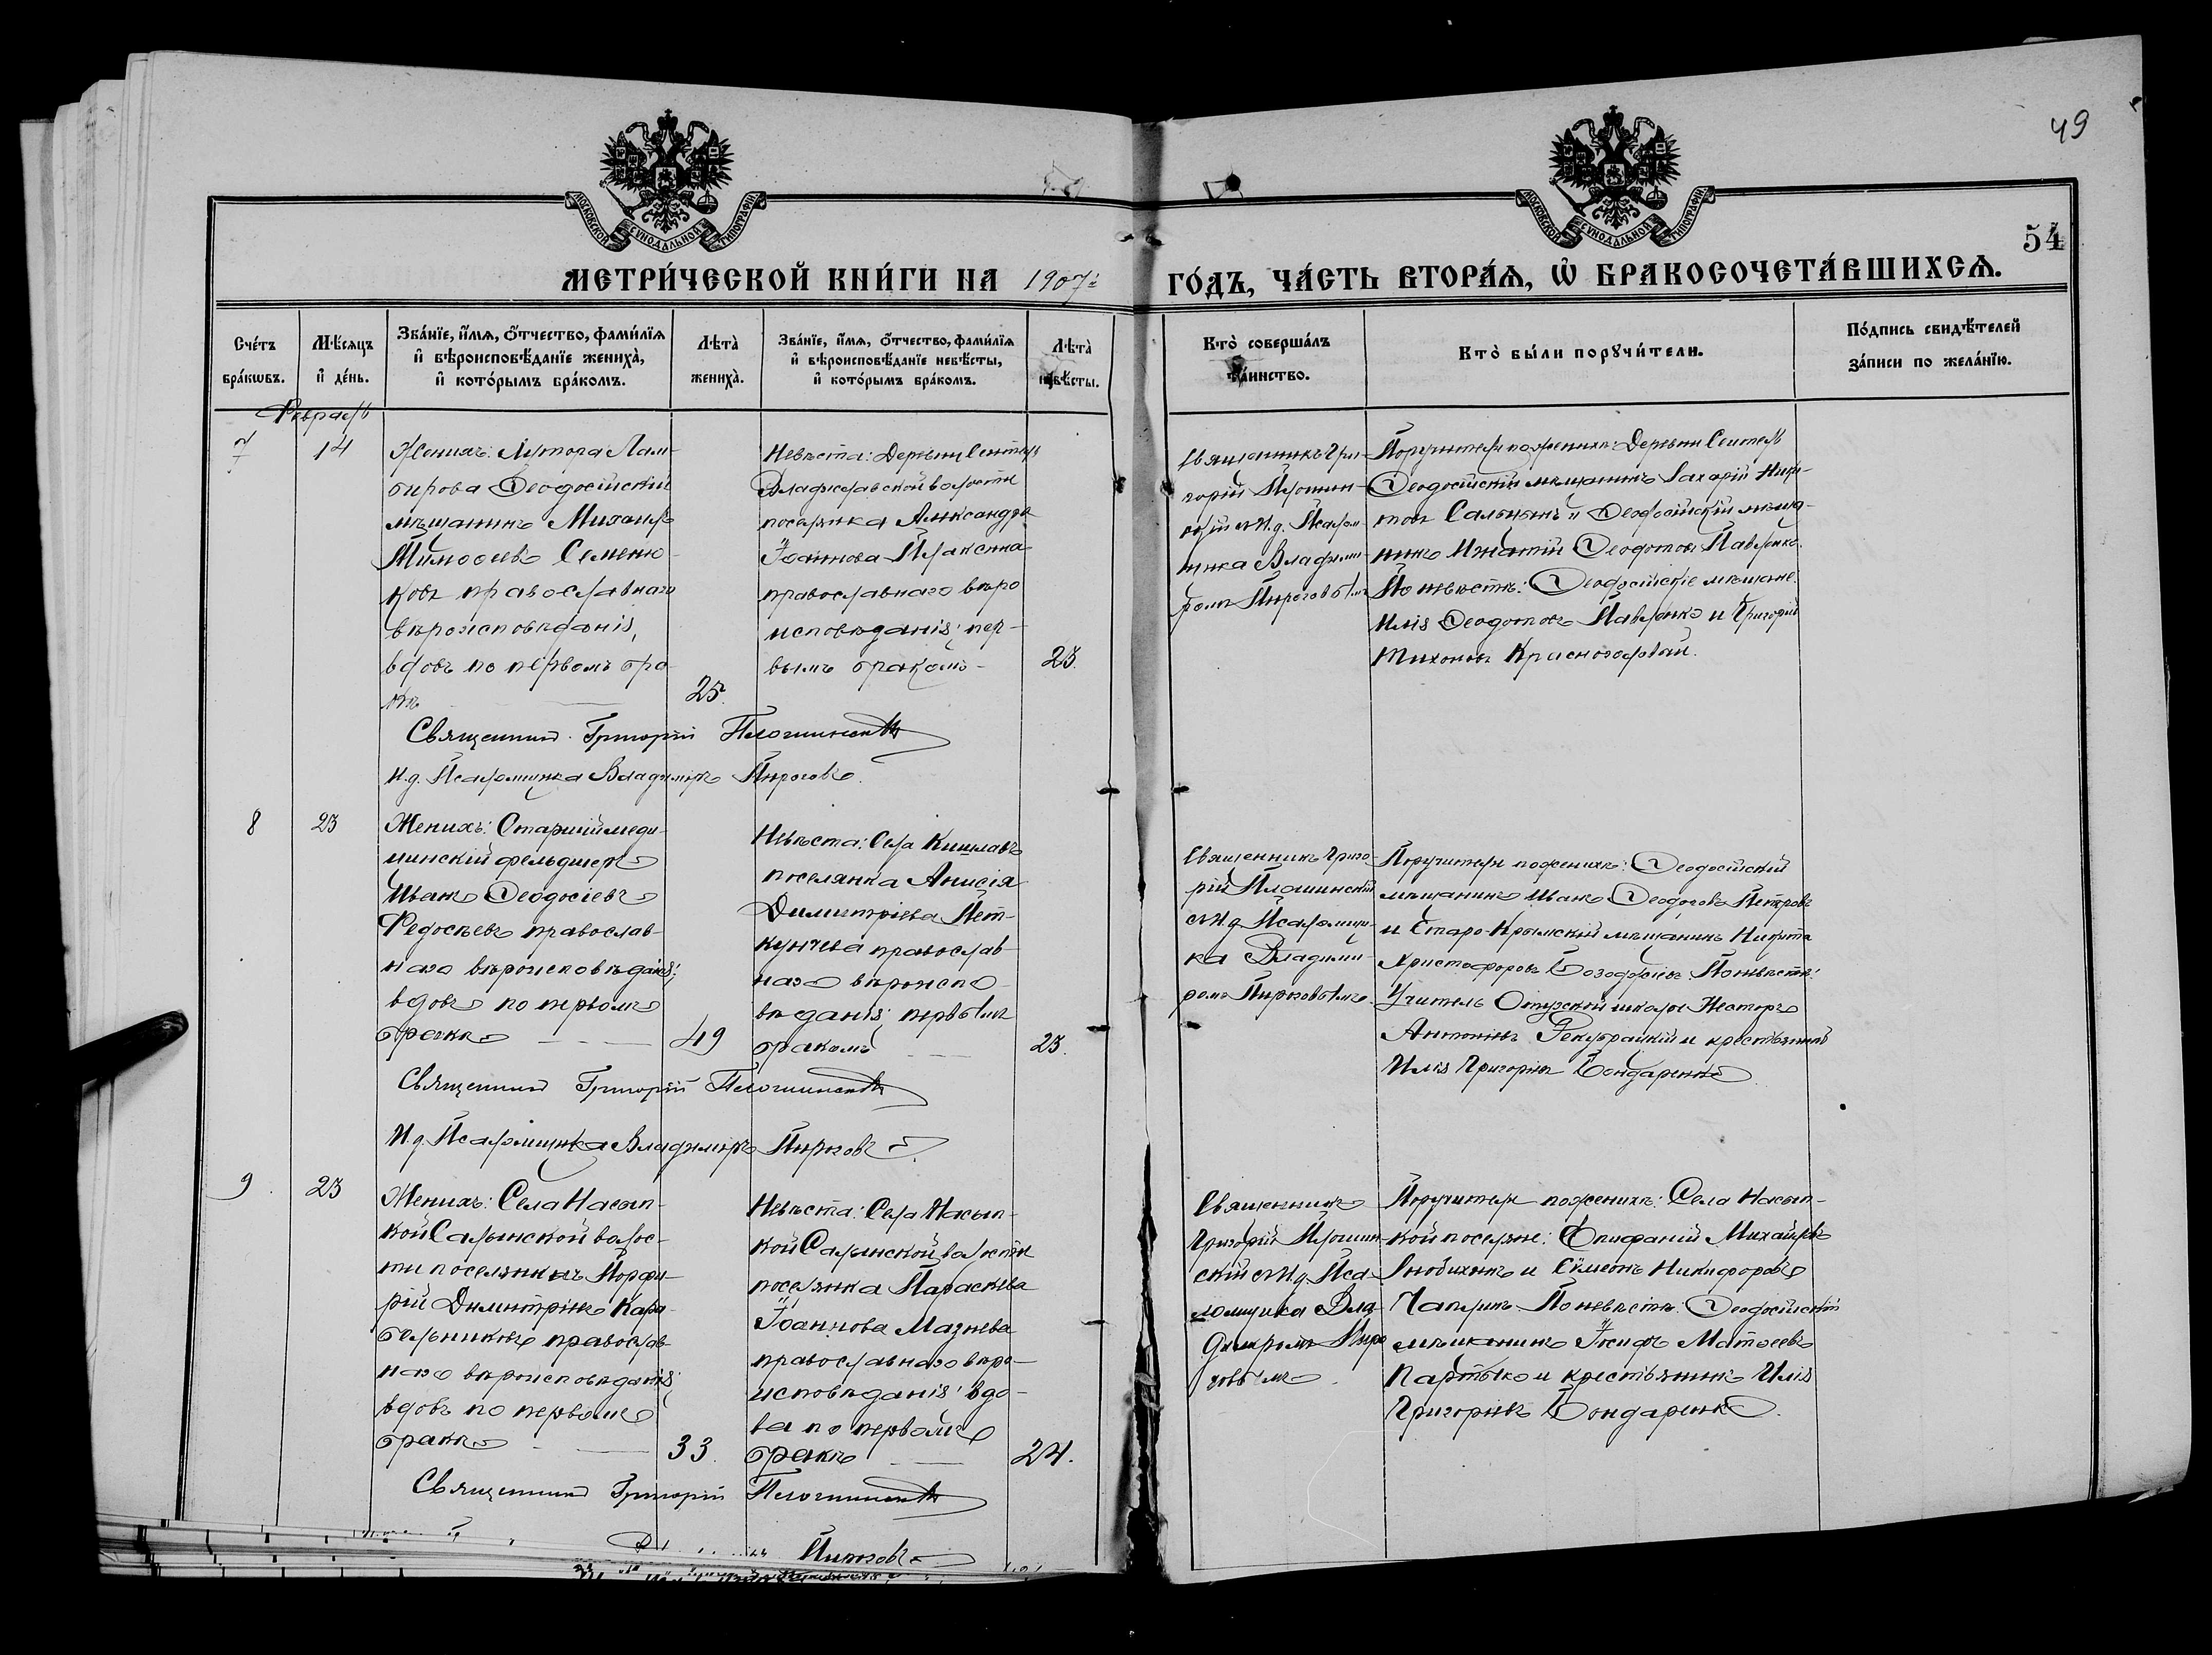 49
54
МОСКОВСКОЙ СѴНОДАЛЬНОЙ ТИПОГРАФІИ
МОСКОВСКОЙ СѴНОДАЛЬНОЙ ТИПОГРАФІИ
МЕТРИ́ЧЕСКОЙ КНИ́ГИ НА 1907 ГО́ДЪ, ЧА́СТЬ ВТОРА́Я, Ѽ БРАКОСОЧЕТА́ВШИХСЯ.
Сче́тъ
бра́кωвъ.
Мѣ́сяцъ
и҆ де́нь.
Зва́нїе, и҆́мя, ѻ҆́тчество, фами́лїя
и҆ вѣроисповѣ́данїе жениха̀,
и҆ кото́рымъ бра́комъ.
Лѣта̀
жениха̀.
Зва́нїе, и҆́мя, ѻ҆́тчество, фами́лїя
и҆ вѣроисповѣ́данїе невѣ́сты,
и҆ кото́рымъ бра́комъ.
Лѣта̀
невѣ́сты.
Кто̀ соверша́лъ
та́инство.
Кто̀ бы́ли порꙋчи́тели.
По́дпись свидѣ́телей
за́писи по жела́нїю.
Февраль
7
14
Женихъ: Хутора Лам-
бирова Ѳеодосійскій
мѣщанинъ Михаилъ
Тимоѳеевъ Семеню-
ковъ православнаго
вѣроисповѣданія,
вдовъ по первомъ бра-
кѣ
25.
Невѣста: Деревни Сеитель
Владиславской волости
поселянка Александра
Іоаннова Плаксина
православнаго вѣро
исповѣданія; пер-
вымъ бракомъ
23.
Священникъ Гри-
горій Плошин-
скій и И.д. Псалом-
щика Владими-
ромъ Пироговымъ
Поручители по женихѣ: Деревни Сеитель
Ѳеодосійскій мѣщанинъ Захарій Ники-
товъ Сальнынъ и Ѳеодосійскій мѣща-
нинъ Игнатій Ѳеодотовъ Павленко.
По невѣстѣ: Ѳеодосійскіе мѣщане:
Илія Ѳеодотовъ Павленко и Григорій
Тихоновъ Красноголовый.
Священникъ Григорій Плошинскій
И.д. Псаломщика Владиміръ Пироговъ.
8
23
Женихъ: Старшій меди-
цинскій фельдшеръ
Иванъ Ѳеодосіевъ
Федосѣевъ православ-
наго вѣроисповѣданія;
вдовъ по первомъ
бракѣ
49
Невѣста: Села Кишлавъ
поселянка Анисія
Димитріева Пет-
кунчева православ-
наго вѣроиспо-
вѣданія; первымъ
бракомъ
23.
Священникъ Григо-
рій Плошинскій
и И.д. Псаломщи-
ка Владими-
ромъ Пироговымъ.
Поручители по женихѣ: Ѳеодосійскій
мѣщанинъ Иванъ Ѳеодоровъ Петровъ
и Старо-Крымскій мѣщанинъ Никита
Христофоровъ Бозоджіевъ. По невѣстѣ:
Учитель Отузской школы Несторъ
Антоніевъ и крестьянинъ
Илія Григорьевъ Бондаренко.
Священникъ Григорій Плошинскій
И.д. Псаломщика Владиміръ Пироговъ.
9.
23
Женихъ: Села Насып-
кой Салынской волос-
ти поселянинъ Порфи-
рій Димитріевъ Кара-
бельниковъ православ-
наго вѣроисповѣданія;
вдовъ по первомъ
бракѣ
33.
Невѣста: Села Насып-
кой Салынской волости
поселянка Параскева
Іоаннова Мазнева
православнаго вѣро-
исповѣданія; вдо-
ва по первомъ
бракѣ
24.
Священникъ
Григорій Плошин-
скій и И.д. Пса-
ломщика Вла-
диміромъ Пиро
говымъ.
Поручители по женихѣ: Села Насып-
кой поселяне: Епифаній Михайловъ
Любихинъ и Сѵмеонъ Никифоровъ
Чаплинъ. По невѣстѣ: Ѳеодосійскій
мѣщанинъ Іосифъ Матѳеевъ
и крестьянинъ Илія
Григорьевъ Бондаренко.
Священникъ Григорій Плошинскій
Пироговъ